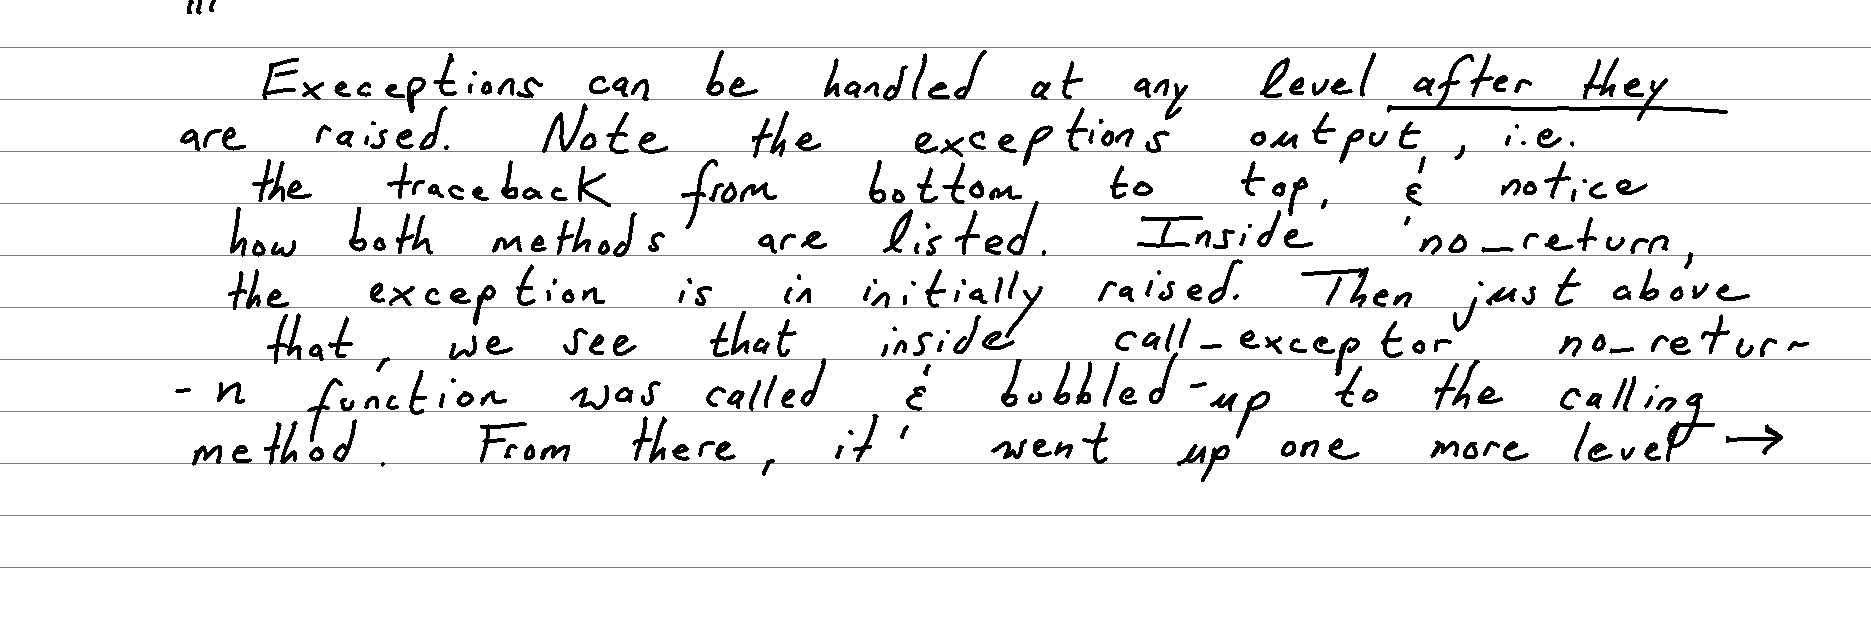 Execeptions can be handled at any level after they
are raised. Note the exceptions output, i.e.
the traceback from bottom to top, & notice
how both methods are listed. Inside 'no_return,
the exception is in initially raised. Then just above
that, we see that inside call_exceptor no_retur-
-n function was called & bubbled-up to the calling
method. From there, it went up one more level →